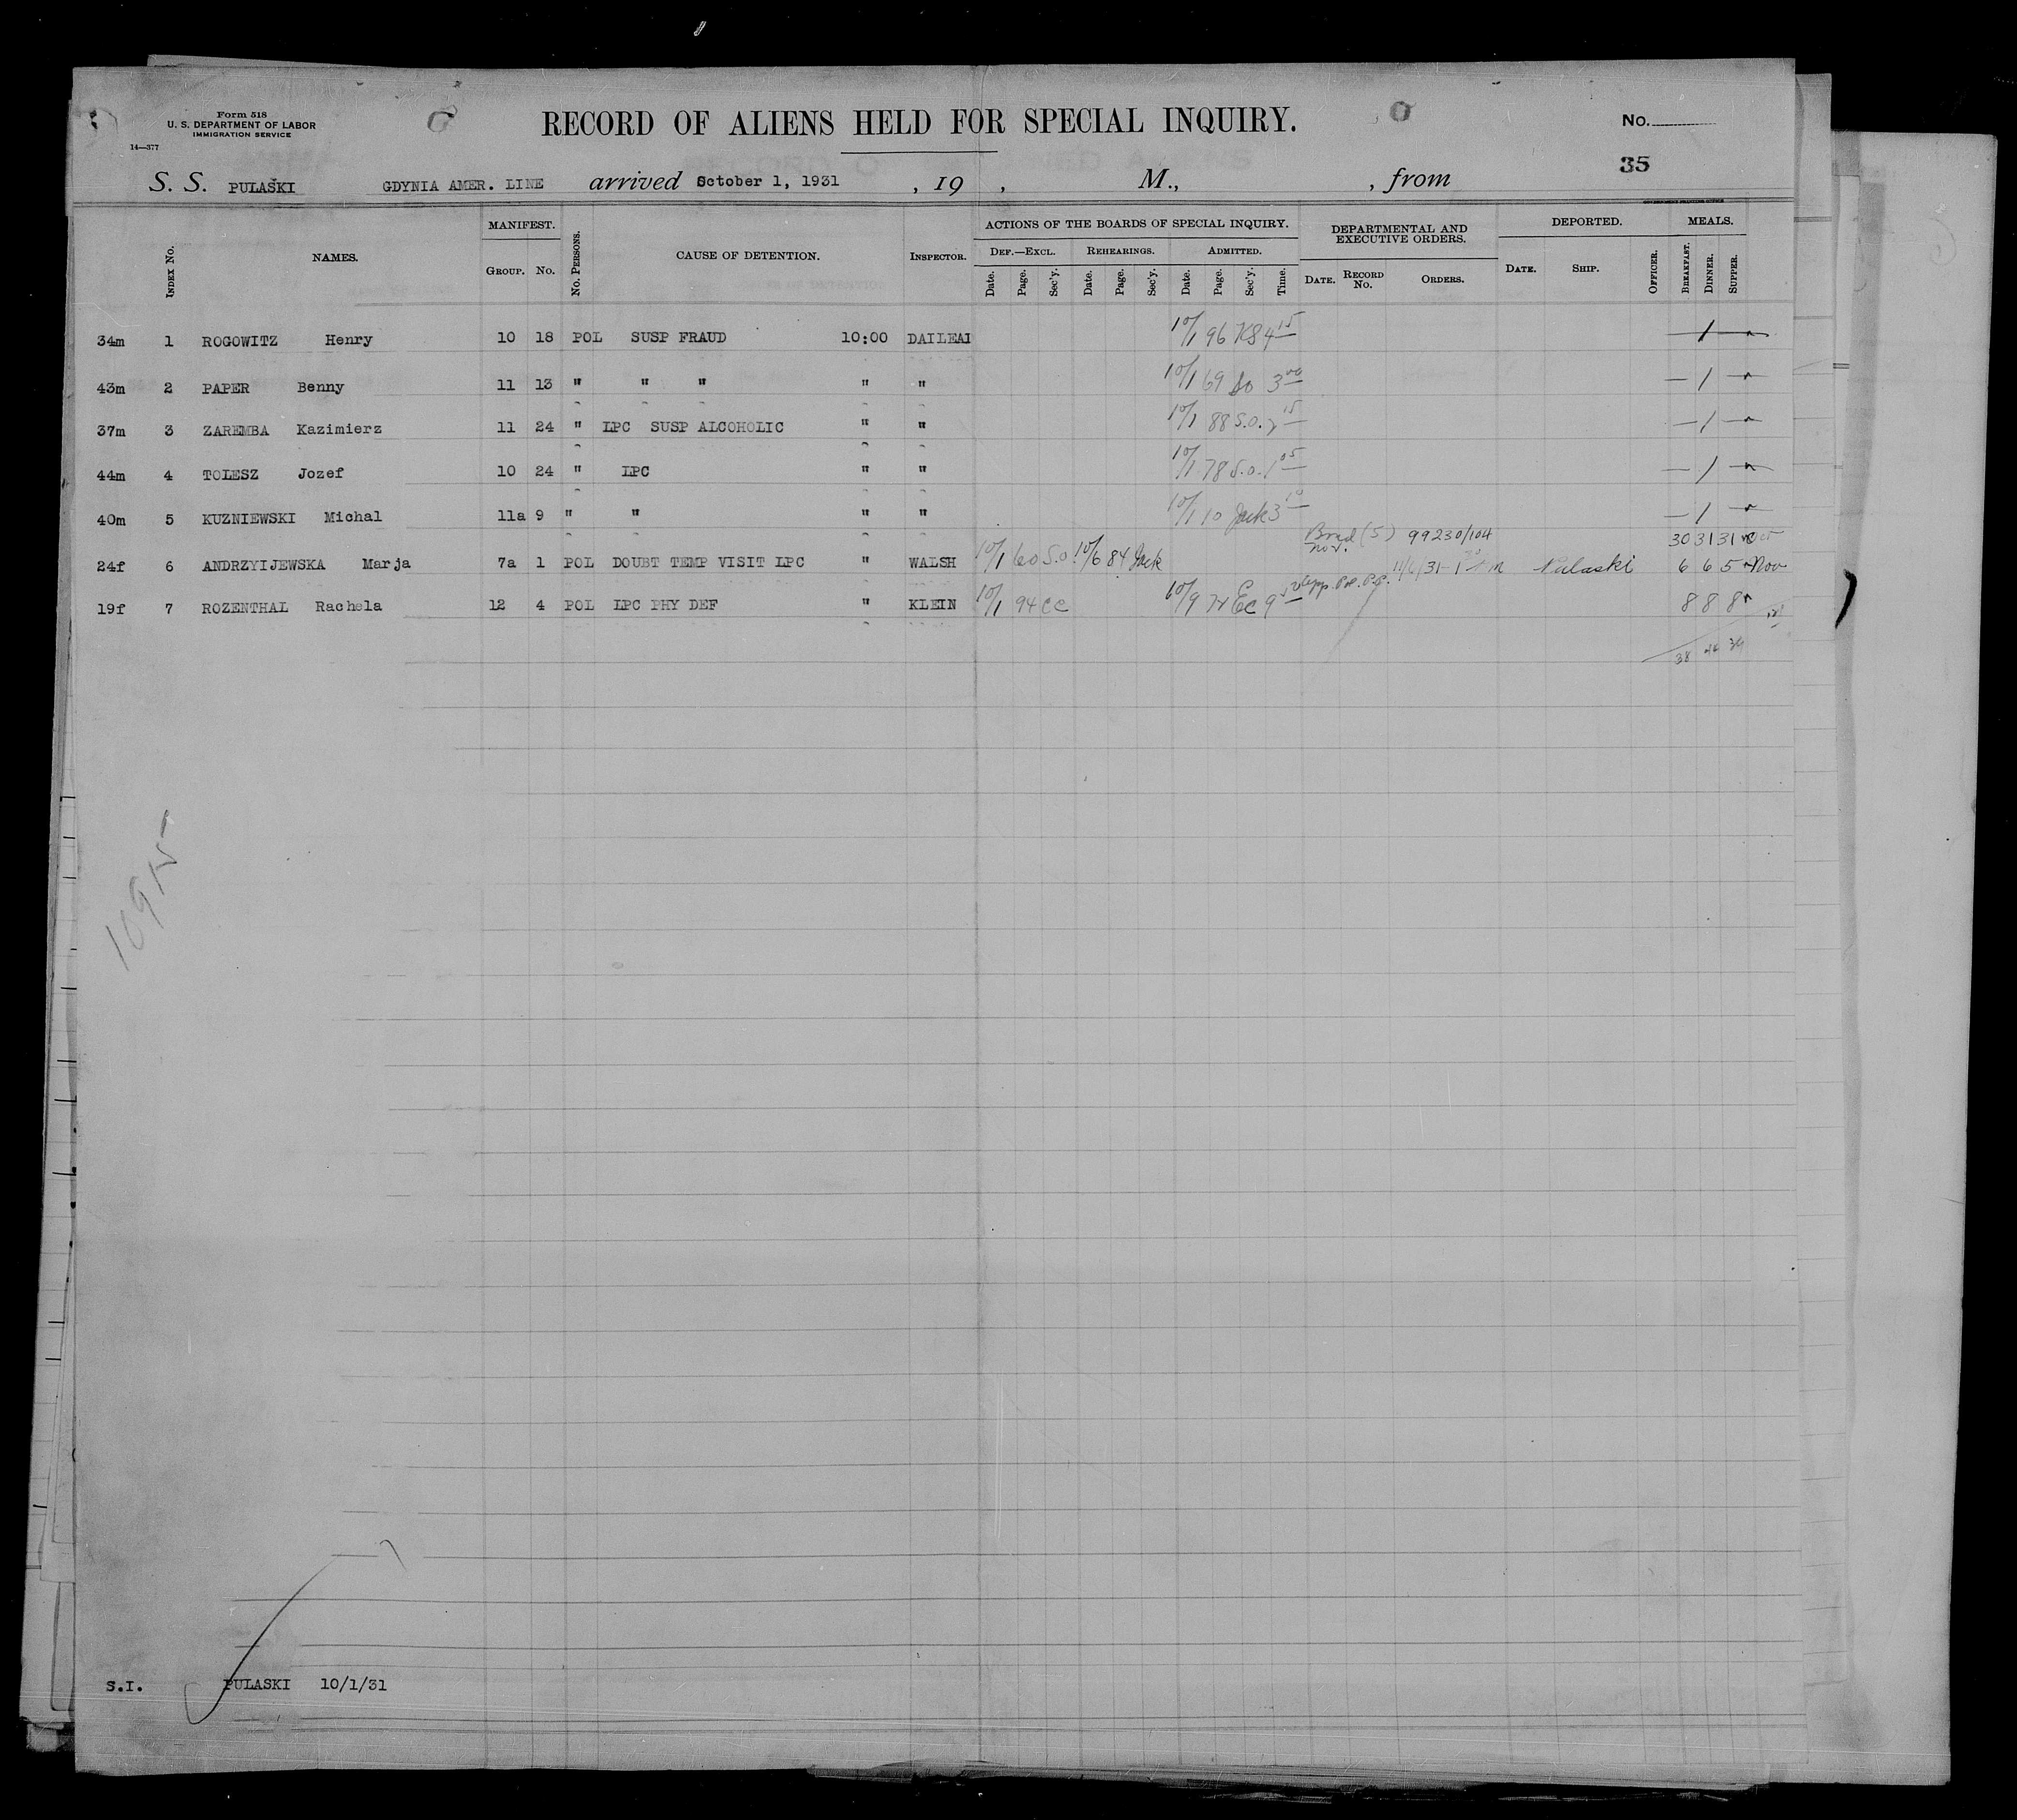 Form 518
U. S. DEPARTMENT OF LABOR
IMMIGRATION SERVICE
14—377
RECORD OF ALIENS HELD FOR SPECIAL INQUIRY.
No.
35
S. S. PULASKI GDYNIA AMER. LINE arrived October 1, 1931 , 19 , M., , from
MANIFEST. ACTIONS OF THE BOARDS OF SPECIAL INQUIRY. DEPARTMENTAL AND EXECUTIVE ORDERS. DEPORTED. MEALS.
Index No. NAMES. Group. No. No. Persons. CAUSE OF DETENTION. Inspector. Def.—Excl. Rehearings. Admitted.
Date. Page. Sec'y. Date. Page. Sec'y. Date. Page. Sec'y. Time. Date. Record No. Orders. Date. Ship. Officer. Breakfast. Dinner. Supper.
34m 1 ROGOWITZ Henry 10 18 POL SUSP FRAUD 10:00 DAILEAI 10/1 96 KS 4 15 — 1 —
43m 2 PAPER Benny 11 13 " " " " " 10/1 69 So 3 00 — 1 —
37m 3 ZAREMBA Kazimierz 11 24 " LPC SUSP ALCOHOLIC " " 10/1 88 S.O. 15 — 1 —
44m 4 TOLESZ Jozef 10 24 " LPC " " 10/1 78 S.O. 1 05 — 1 —
40m 5 KUZNIEWSKI Michal 11a 9 " " " " 10/1 10 Jack 3 10 — 1 —
(5) 99230/104 30 31 31
24f 6 ANDRZYIJEWSKA Marja 7a 1 POL DOUBT TEMP VISIT LPC " WALSH 10/1 60 S.O. 10/6 84 Jack 11/6/31 Pulaski 6 6 5 Nov
19f 7 ROZENTHAL Rachela 12 4 POL LPC PHY DEF " KLEIN 10/1 94 CC 10/9 EC 9 8 8 8
38
S.I. PULASKI 10/1/31